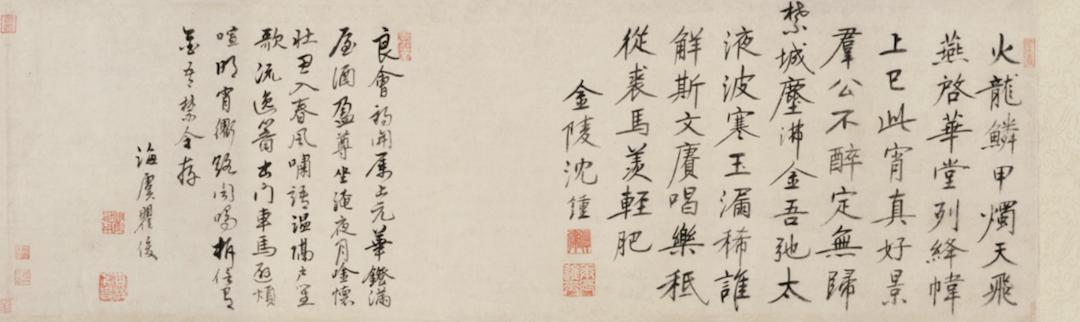 火龍鱗甲燭天飛
燕啓華堂列絳幃
上巳此宵真好景
羣公不醉定無歸
禁城塵沸金吾弛太
液波寒玉漏稀誰
解斯文賡唱樂秪
從裘馬羨輕肥
金陵沈鍾
良會開屬上元華鐙滿
屋酒盈尊坐淹夜月吟懷
壯思入春風嘯語溫隔戶笙
歌流逸響出門車馬煩
喧明宵衢路聞鳴柝信有
金吾禁令存
海虞瞿俊